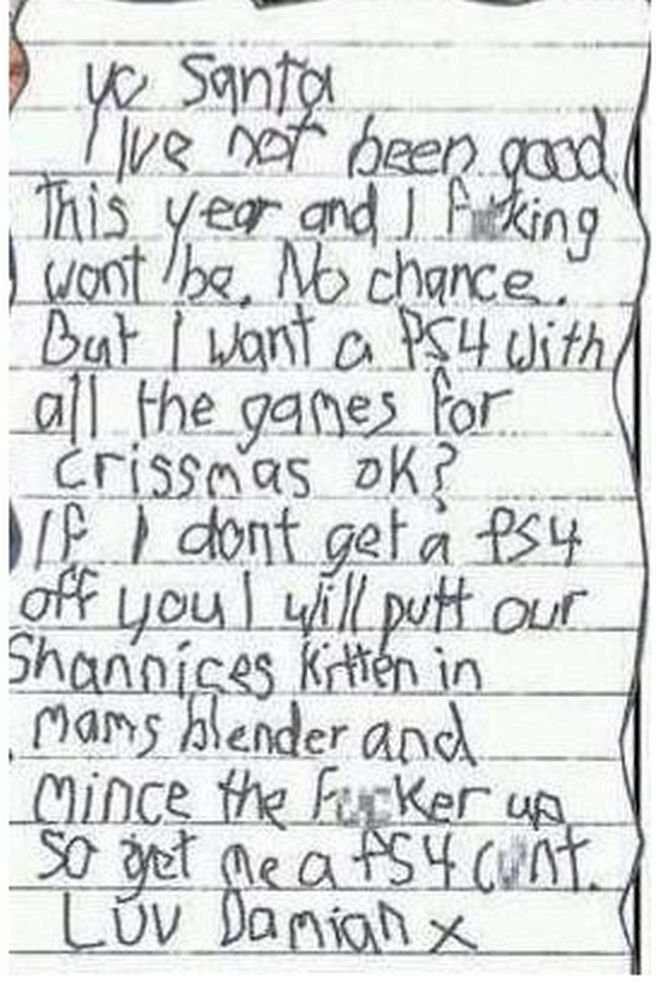 yo Santa
Ive not been good
This year and I f**king
wont be. No chance.
But I want a PS4 with
all the games for
crissmas ok?
If I dont get a PS4
off you I will putt our
Shannices kitten in
mams blender and
mince the fucker up
so get me a PS4 c*nt.
Luv Damian x